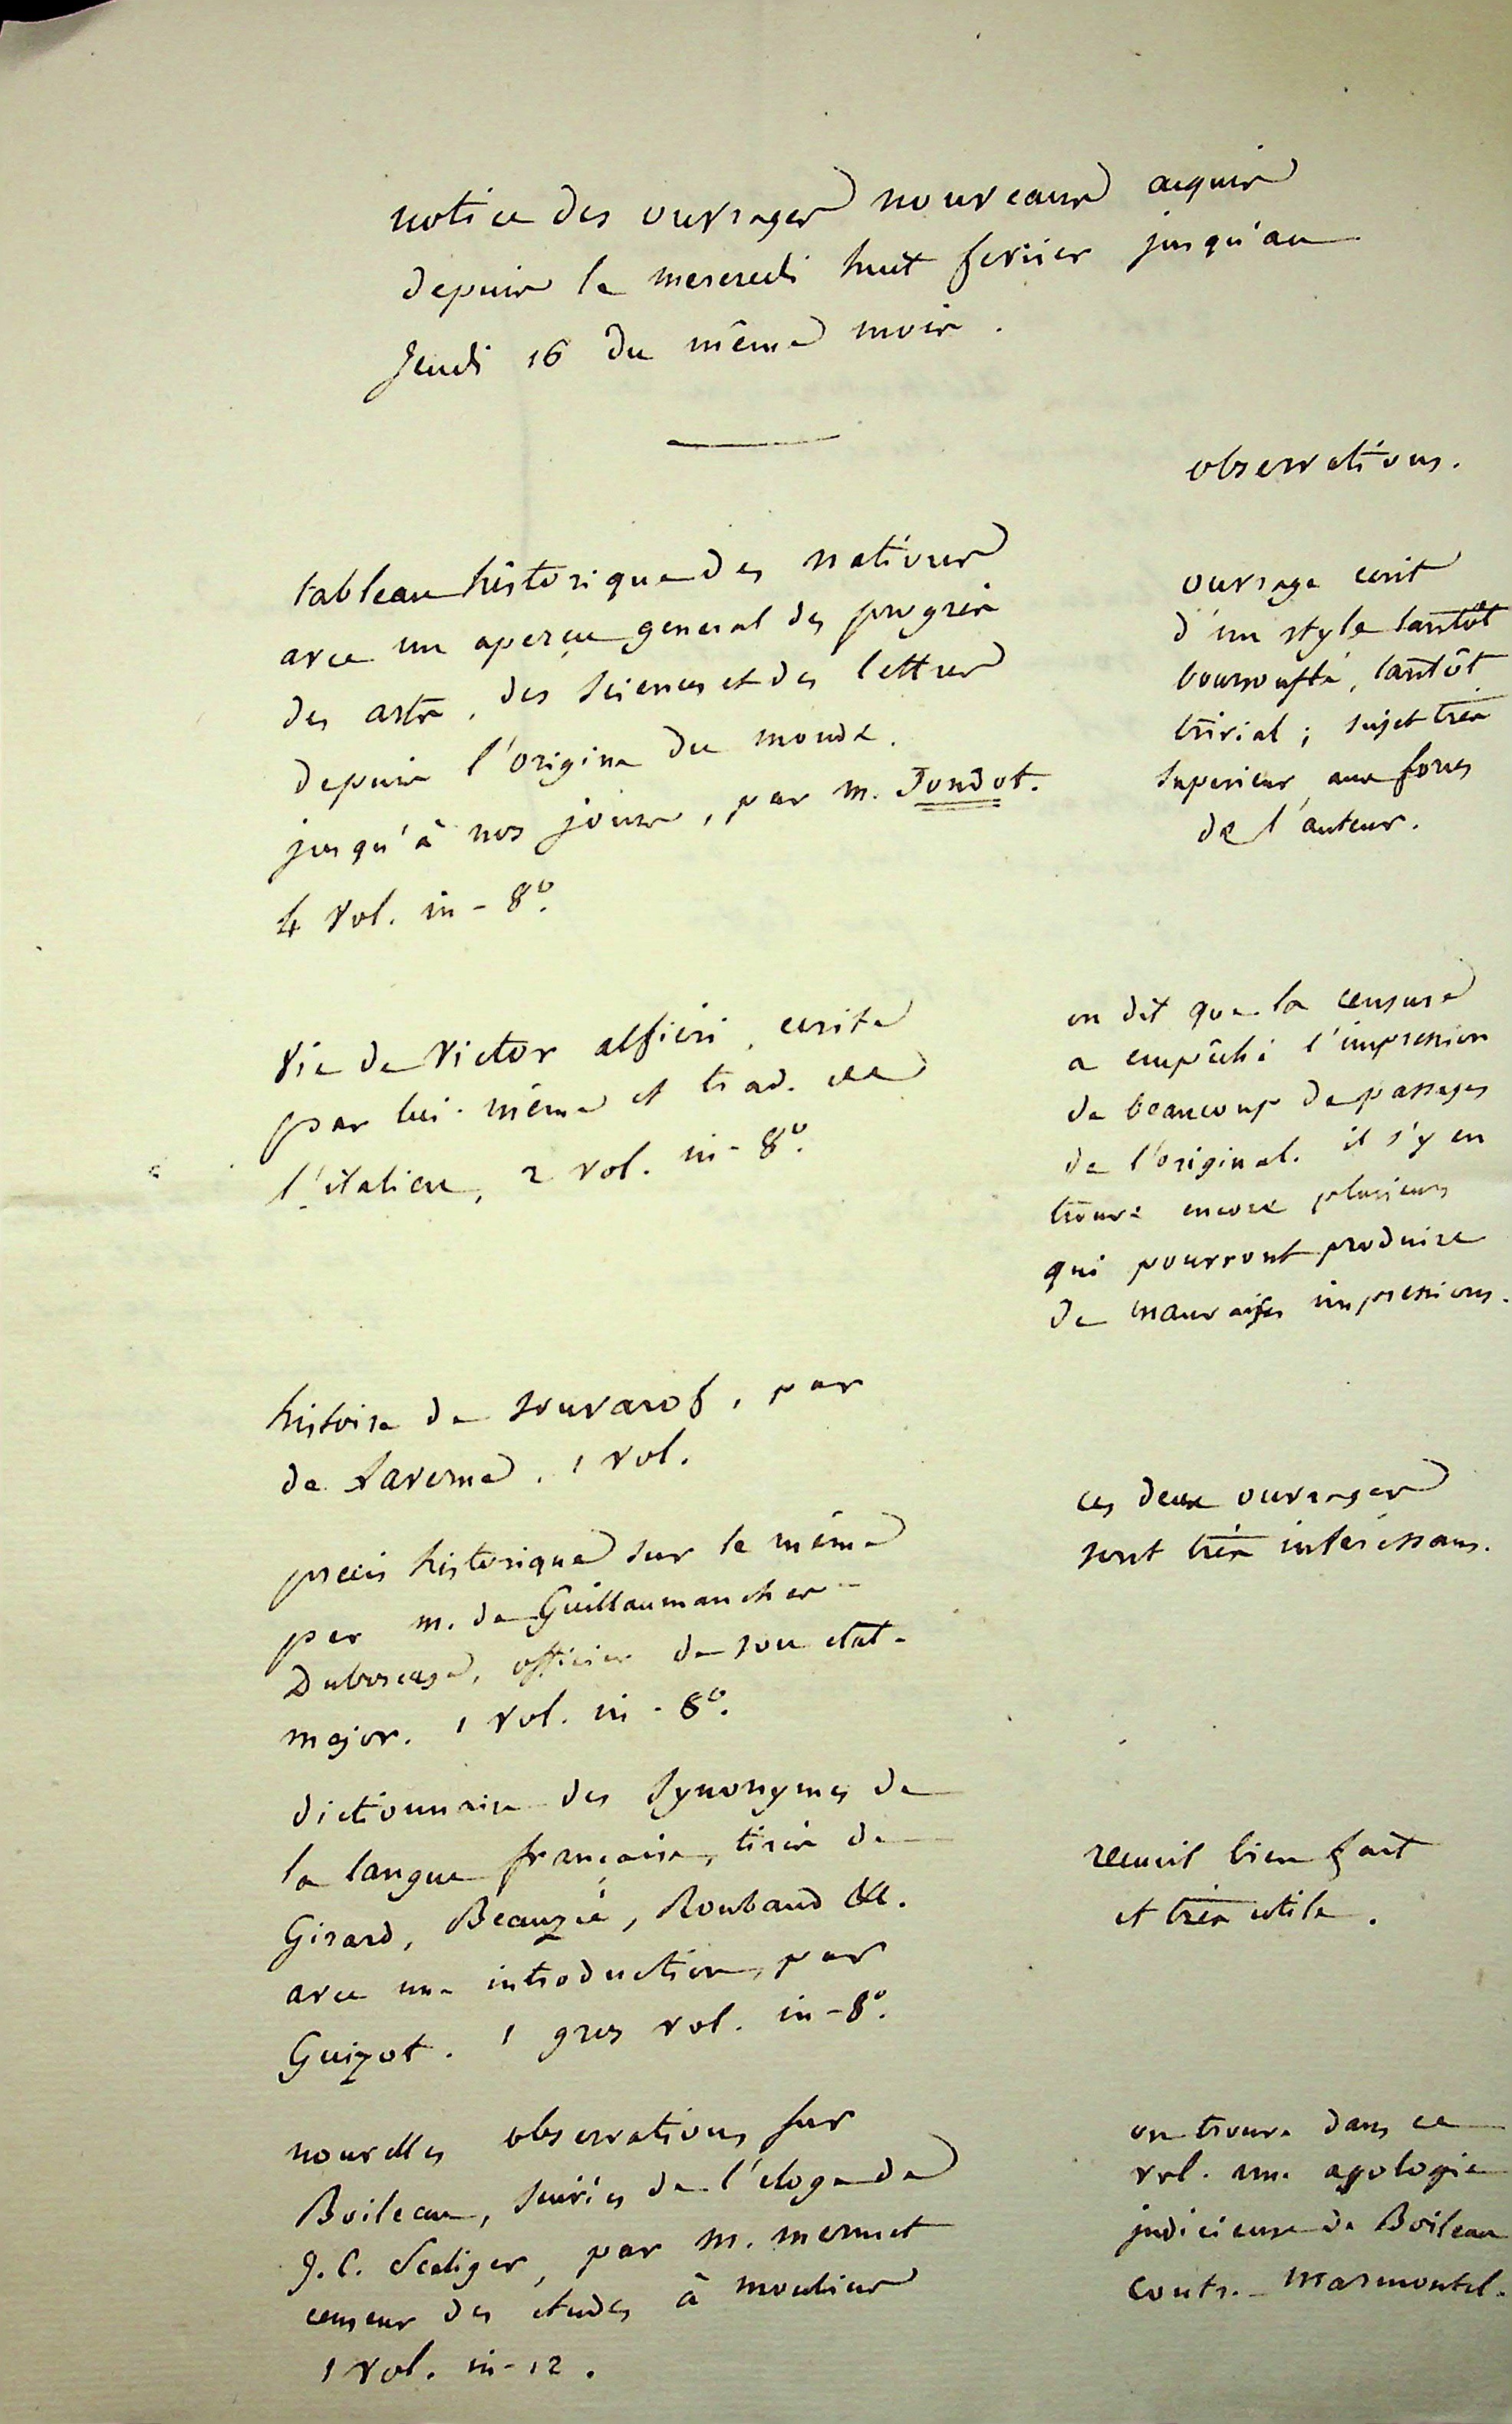 notice des ouvrages nouveaux acquis
depuis le mercredi huit fevrier jusqu'au
Jeudi 16 du même mois.
observations.
tableau historique des nations
avec un aperçu general des progrès
des arts, des sciences et des lettres
depuis l'origine du monde.
jusqu'à nos jours, par m. Jondot.
4 vol. in-8º.
ouvrage ecrit
d'un style tantôt
boursouflé, tantôt
trivial; sujet très
superieur aux forces
de l'auteur.
vie de Victor alfieri, ecrite
par lui-même et trad. de
l'italien, 2 vol. in-8º.
on dit que la censure
a empêché l'impression
de beaucoup de passages
de l'original. il s'y en
trouve encore plusieurs
qui pourront produire
de mauvaises impressions.
histoire de souvarof, par
de Laverne. 1 vol.
precis historique sur le même
par m. de Guillaumanches-
Duboscage, officier de son etat-
major. 1 vol. in-8º.
ces deux ouvrages
sont très intéressans.
dictionnaire des synonymes de
la langue française, tirés de
Girard, Beauzée, Roubaud &c.
avec une introduction, par
Guizot. 1 gros vol. in-8º.
recueil bien fait
et très utile.
nouvelles observations sur
Boileau, suivies de l'eloge de
J. C. Scaliger, par m. mermet
censeur des etudes à moulins
1 vol. in-12.
on trouve dans ce
vol. une apologie
judicieuse de Boileau
contre marmontel.